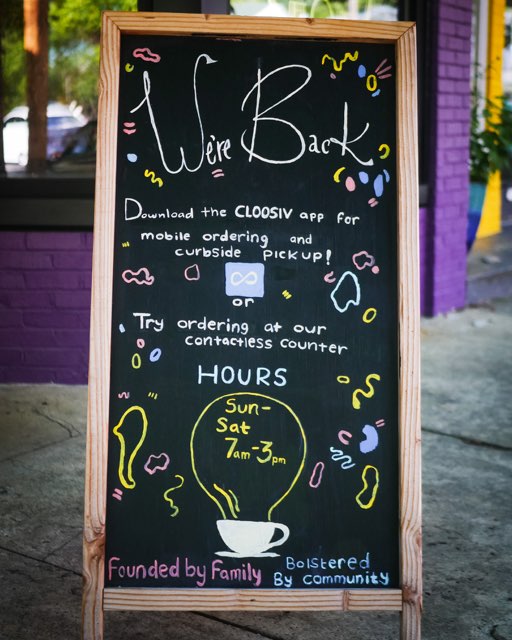 We're Back
Download the CLOOSIV app for
mobile ordering and
curbside pickup!
or
Try ordering at our
contactless counter
HOURS
Sun-
Sat
7am-3pm
Founded by Family
Bolstered
By community